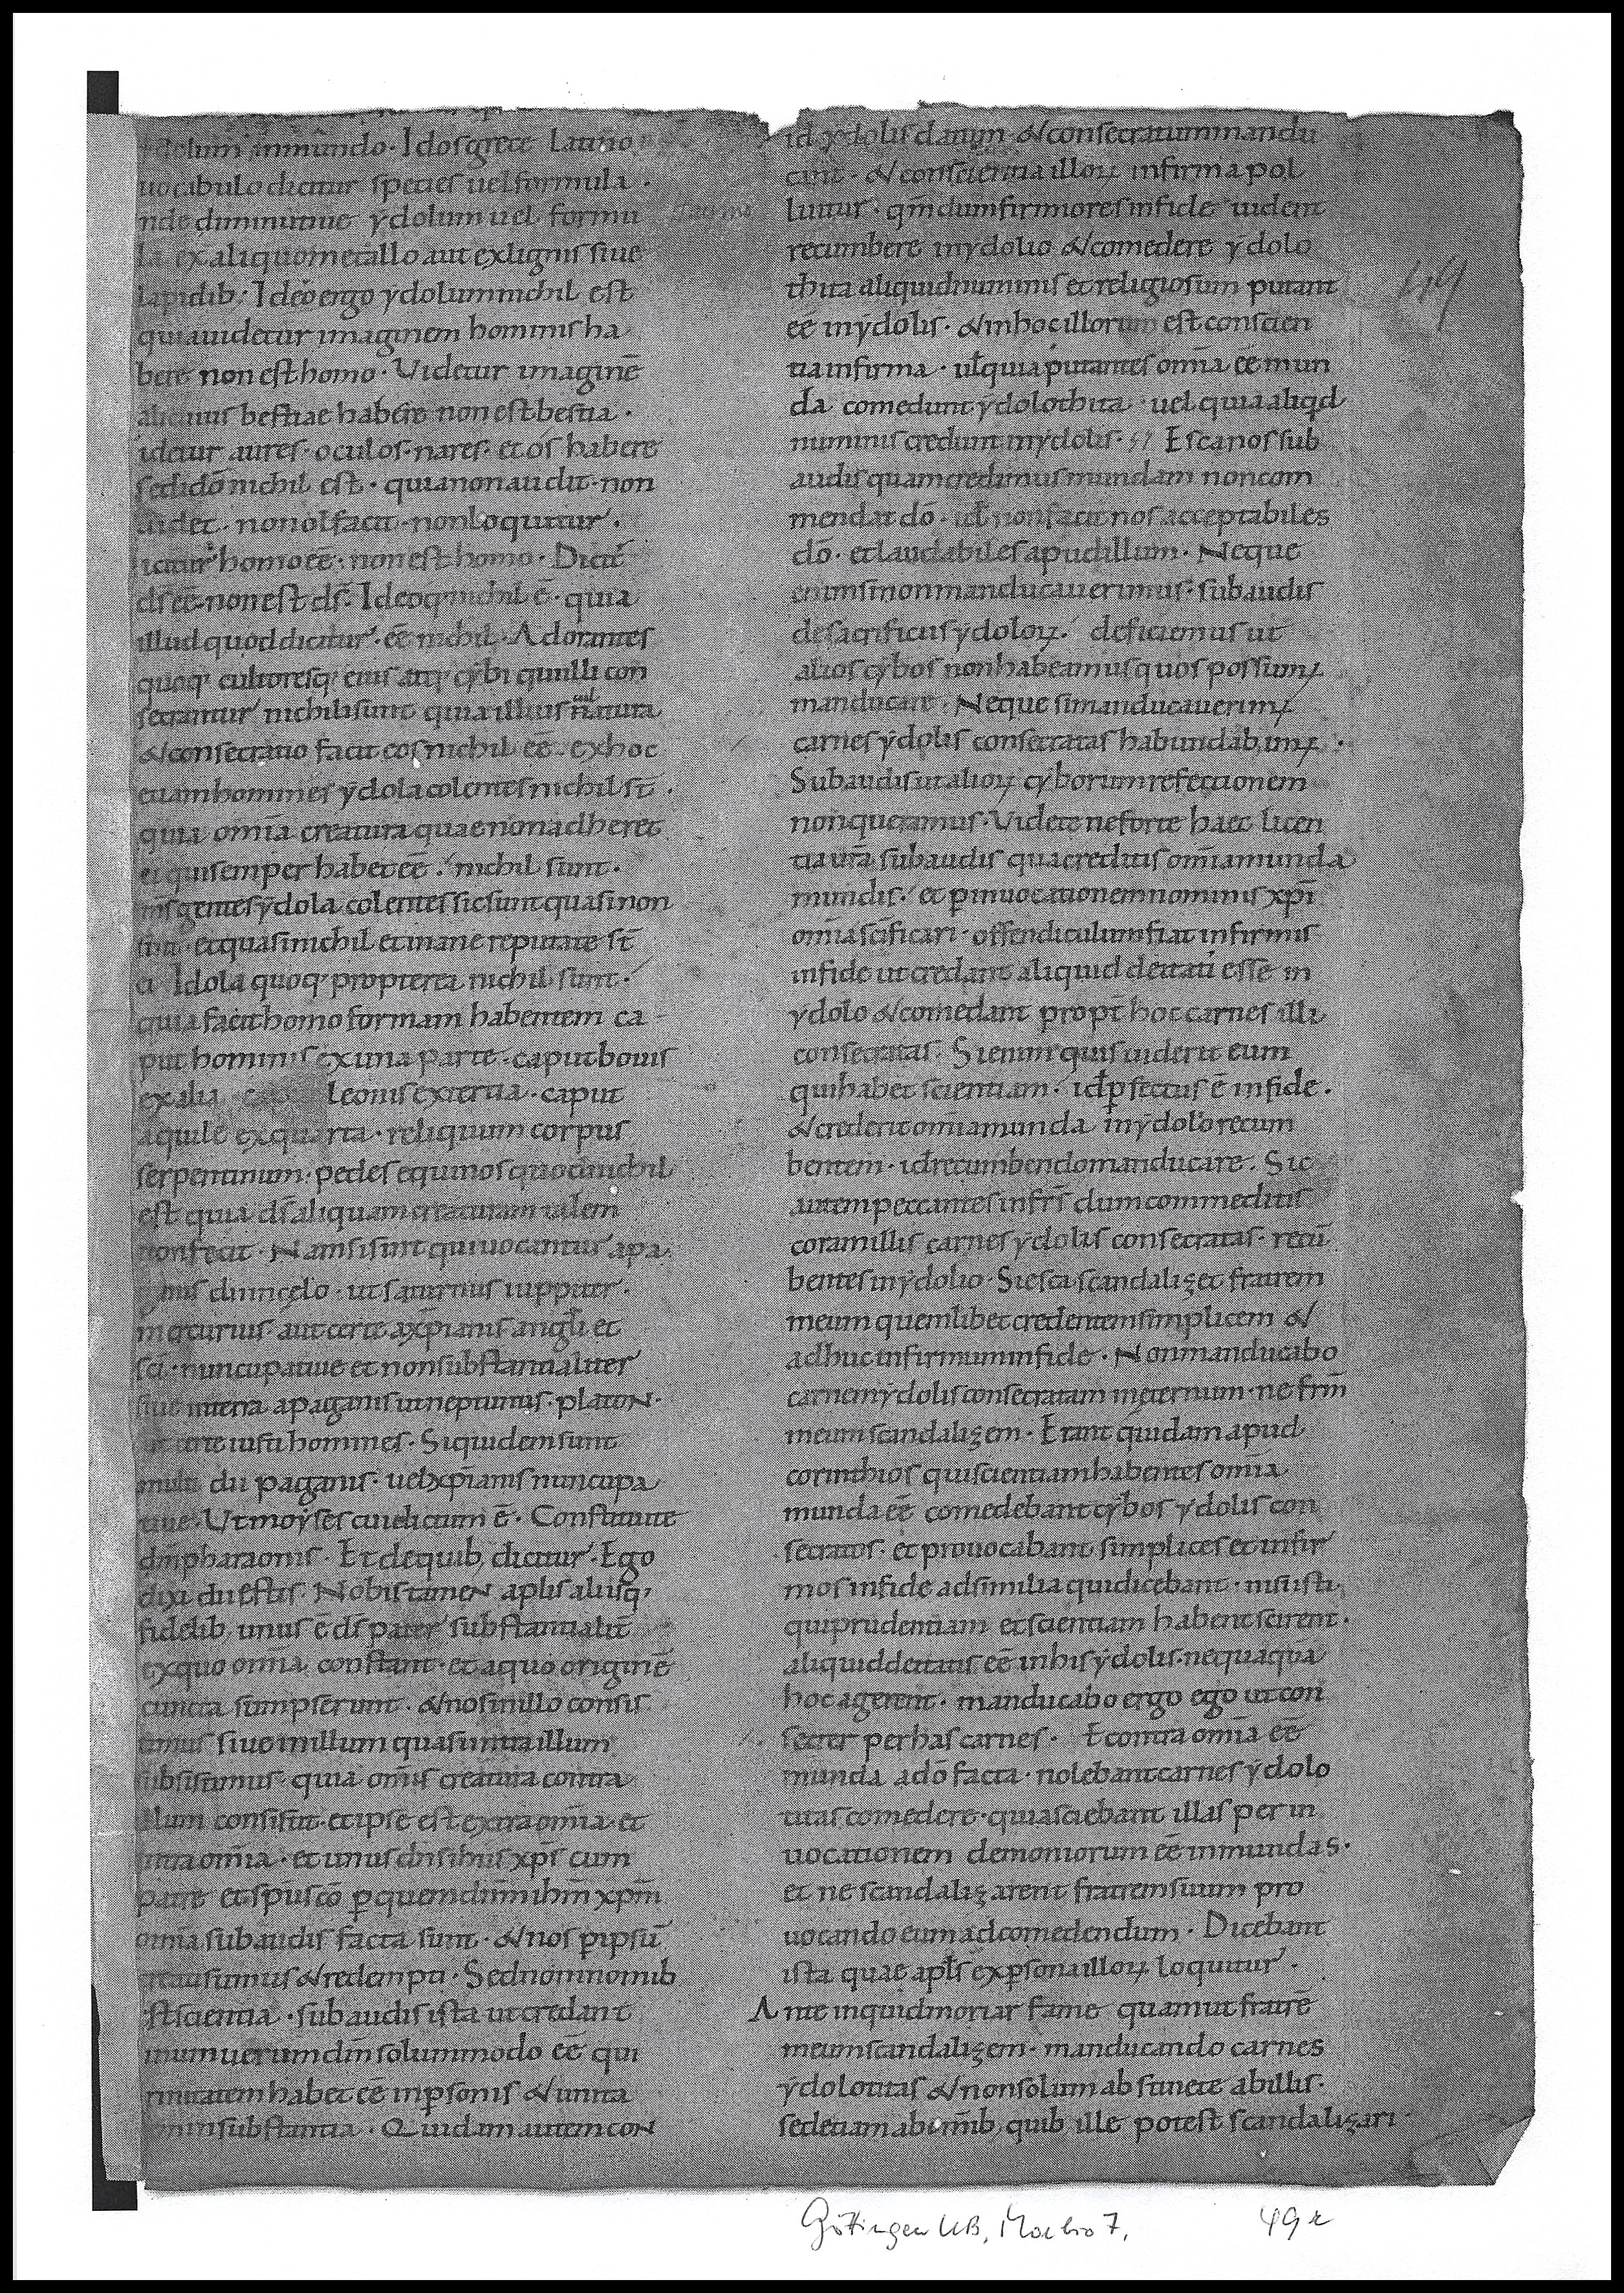 ydolum inmundo. Idos grece Latino
uocabulo dicitur species uel formula.
nde diminutiue ydolum uel formu
la ex aliquo metallo aut ex lignis siue
lapidib; Ideo ergo ydolum nichil est
quia uidetur imaginem hominis ha
bere non est homo. Videtur imaginē
alicuius bestiae habere non est bestia.
idetur aures. oculos. nares. et os habere
sed idō nichil est. quia non audit. non
uidet. non olfacit. non loquitur.
icitur homo eē. non est homo. Dicit᷒
ds eē. non est ds. Ideoq; nichil ē. quia
illud quod dicitur. eē nichil. Adorantes
quoq; cultoresq; eius atq; cybi qui illi con
secrantur nichili sunt quia illius natura
& consecratio facit eos nichil eē. ex hoc
etiam homines ydola colentes nichil st̄.
quia omīa creatura quae non adheret
ei qui semper habet eē. nichil sunt.
gentes ydola colentes sic sunt quasi non
sint. et quasi nichil et inane reputate st̄
ei Idola quoq; propterea nichil sunt.
quia facit homo formam habentem ca
put hominis ex una parte. caput bouis
ex alia leonis ex tertia. caput
aquile ex quarta. reliquum corpus
serpentinum. pedes equinos quod nichil
est quia ds̄ aliquam creaturam talem
non fecit. Nam si sunt qui uocantur a pa
ganis dii in celo. ut saturnus iuppiter.
mercurius. aut certe a xp̄ianis angl̄i et
sc̄i. nuncupatiue et non substantialiter
siue in terra a paganis ut neptunus. platoN.
certe iusti homines. Siquidem sunt
multi dii paganis. uel xp̄ianis nuncupa
tiue. Vt moyses cui dictum ē. Constitui te
dm̄ pharaonis. Et de quib; dicitur. Ego
dixi dii estis. Nobis tameN apl̄is aliisq;
fidelib; unus ē ds̄ pater substantialit̄
ex quo omīa constant. et a quo originē
cuncta sumpserunt. & nos in illo consis
timus siue in illum quasi intra illum
subsistimus. quia omīs creatura contra
illum consistit. et ipse est extra omīa. et
intra omīa. et unus dn̄s ih̄us xp̄s cum
patre et sp̄u sc̄o p quem dn̄m ih̄m xp̄m
omīa subaudis facta sunt. & nos p ipsū
creati sumus & redempti. Sed non in omib;
est scientia. subaudis ista ut credant
unum uerum dm̄ solummodo eē qui
trinitatem habet eē in psonis & unita
tem in substantia. Quidam autem coN
id ydolis datum & consecratum mandu
cant. & conscientia illoꝝ infirma pol
luitur. qm̄ dum firmiores in fide uident
recumbere in ydolio & comedere ydolo
thita aliquid numinis et religiosum putant
eē in ydolis. & in hoc illorum est conscien
tia infirma. ul̄ quia putantes omīa eē mun
da comedunt ydolothita. uel quia aliqd
numinis credunt in ydolis. Esca nos sub
audis quam credimus mundam non com
mendat dō. id̄ non facit nos acceptabiles
dō. et laudabiles apud illum. Neque
enim si non manducauerimus. subaudis
de sacrificiis ydoloꝝ. deficiemus ut
alios cybos non habeamus quos possumꝰ
manducare. Neque si manducauerimꝰ
carnes ydolis consecratas habundabimꝰ.
Subaudis ut alioꝝ cyborum refectionem
non queramus. Videte ne forte haec licen
tia urā subaudis qua creditis omīa munda
mundis. et p inuocationem nominis xp̄i
omīa sc̄ificari. offendiculum fiat infirmis
in fide ut credant aliquid deitati esse in
ydolo & comedant propt̄ hoc carnes illi
consecratas. Si enim quis uiderit eum
qui habet scientiam. id̄ pfectus ē in fide.
& crederit omīa munda in ydolo recum
bentem. id̄ recumbendo manducare. Sic
autem peccantes in frs̄ dum commeditis
coram illis carnes ydolis consecratas. recū
bentes in ydolio. Si esca scandalizet fratrem
meum quemlibet credentem simplicem &
adhuc infirmum in fide. Non manducabo
carnem ydolis consecratam in eternum. ne frm̄
meum scandalizem. Erant quidam apud
corinthios qui scientiam habentes omīa
munda eē comedebant cybos ydolis con
secratos. et prouocabant simplices et infir
mos in fide ad similia qui dicebant. nisi isti
qui prudentiam et scientiam habent scirent.
aliquid deitatis eē in his ydolis. nequaquā
hoc agerent. manducabo ergo ego ut con
secrer per has carnes. Econtra omīa eē
munda a dō facta. nolebant carnes ydolo
titas comedere. quia sciebant illas per in
uocationem demoniorum eē inmundas.
et ne scandalizarent fratrem suum pro
uocando eum ad comedendum. Dicebant
ista quae apl̄s ex psona illoꝝ loquitur.
Ante inquid moriar fame quam ut fratrē
meum scandalizem. manducando carnes
ydolotitas & non solum abstinete ab illis.
sed etiam ab omīb; quib; ille potest scandalizari
49
Göttingen UB, Morbio 7, 49r